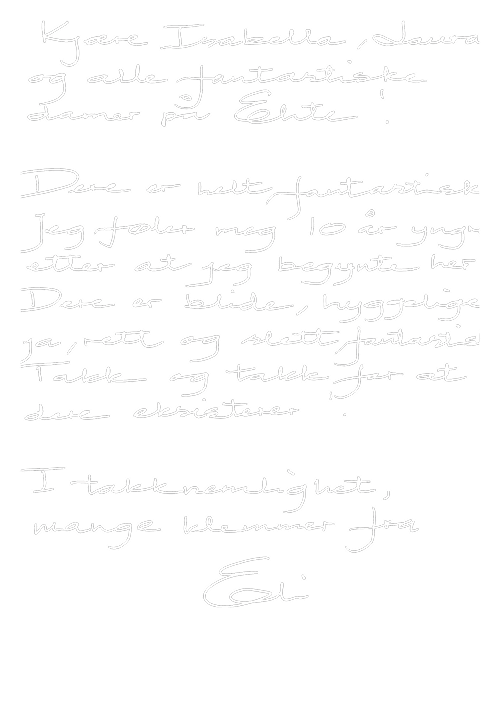 Kjære Isabella, Laura
og alle fantastiske
damer på Elite!
Dere er helt fantastisk
Jeg føler meg 10 år yngr
etter at jeg begynte her
Dere er blide, hyggelige
ja, rett og slett fantastis
Takk og takk for at
dere eksisterer!
I takknemlighet,
mange klemmer fra
Eli